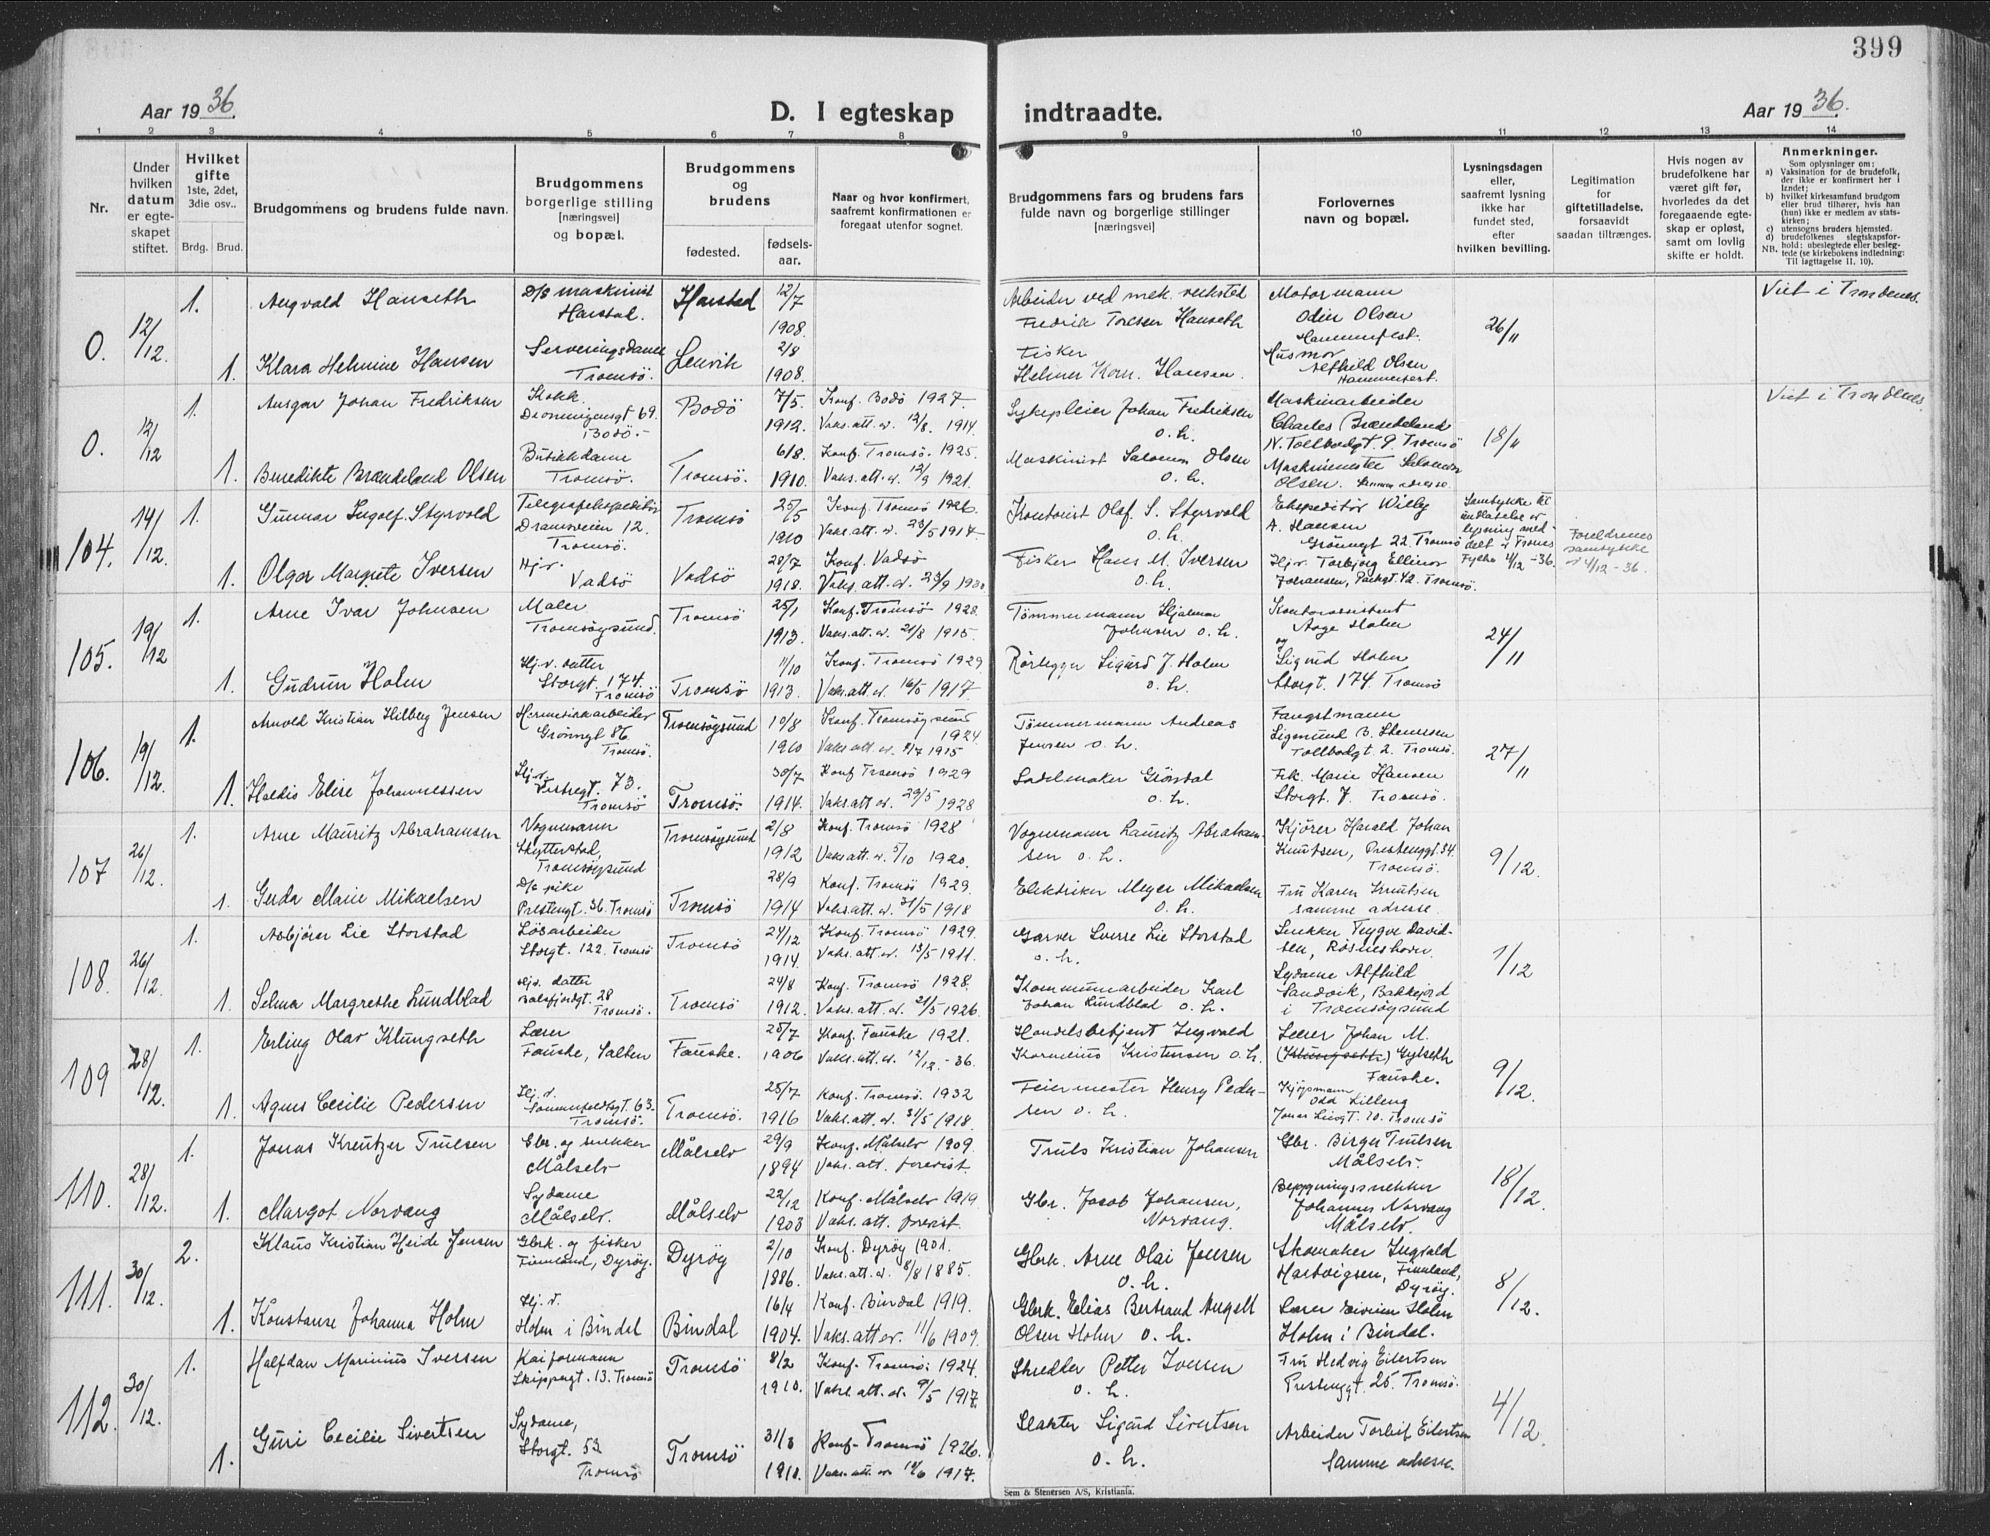 399
Aar 1936.
D. I egteskap indtraadte.
Aar 1936.
1 2 3 4 5 6 7 8 9 10 11 12 13 14
Nr.
Under hvilken datum er egteskapet stiftet.
Hvilket gifte
1ste, 2det, 3die osv..
Brdg. Brud.
Brudgommens og brudens fulde navn.
Brudgommens borgerlige stilling [næringsvei] og bopæl.
Brudgommens og brudens
fødested.
fødselsaar.
Naar og hvor konfirmert, saafremt konfirmationen er foregaat utenfor sognet.
Brudgommens fars og brudens fars fulde navn og borgerlige stillinger [næringsvei]
Forlovernes navn og bopæl.
Lysningsdagen eller, saafremt lysning ikke har fundet sted, efter hvilken bevilling.
Legitimation for giftetilladelse, forsaavidt saadan tiltrænges.
Hvis nogen av brudefolkene har været gift før, hvorledes da det foregaaende egteskap er opløst, samt om lovlig skifte er holdt.
Anmerkninger.
Som oplysninger om:
a) Vaksination for de brudefolk, der ikke er konfirmert her i landet;
b) hvilket kirkesamfund brudgom eller brud tilhører, hvis han (hun) ikke er medlem av statskirken;
c) utensogns bruders hjemsted.
d) brudefolkenes slegtskapsforhold: ubeslegtede eller beslegtede (se kirkebokens indledning: Til Iagttagelse II, 10).
NB.
0. 12/12 1. Augvald Hanseth D/S maskinist Harstad. Harstad 12/7 1908. Arbeider ved mek. verksted Fredrik Toresen Hanseth Motormann Odin Olsen Hammerfest. 26/11 Viet i Trondenes.
1. Klara Helmine Hansen Serveringsdame Tromsö. Lenvik 2/8 1908. Fisker Helmer Korn. Hansen. Husmor Alfhild Olsen Hammerfest.
0. 12/12 1. Ansgar Johan Fredriksen Kokk. Dronningensgt 69. Bodö. Bodö 7/5. 1912. Konf. Bodö 1927. Vaks. att. d. 12/8. 1914. Sykepleier Johan Fredriksen o. h. Maskinarbeider Charles Brændeland N. Tollbodgt. 9 Tromsö 18/11 Viet i Trondenes
1. Benedikte Brændeland Olsen Butikkdame Tromsö. Tromsö. 6/8. 1910. Konf. Tromsö. 1925. Vaks. att. d. 12/9 1921. Maskinist Salomon Olsen o. h. Maskinmester Salomon Olsen. samme adresse.
104. 14/12 1. Gunnar Ingolf. Styrvold Telegrafekspeditör Dramsveien 12. Tromsö. Tromsö 25/5 1910 Konf Tromsö 1926. Vaks. att. d. 23/5 1914 Kontorist Olaf. S. Styrvold o. h. Ekspeditör Willy A. Hansen Grönnegt 22. Tromsö Samtykke til lysning meddelt i Troms Fylke 4/12 -36. Foreldrenes samtykke d 4/12 - 36.
1. Olga Margrete Iversen Hj.v. Vadsö Vadsö 28/7 1918. Konf. Vadsö Vaks. att. d. 23/9 1930 Fisker Hans M. Iversen o. h. Hj.v. Torbjörg Ellinor Johansen, Parkgt. 42. Tromsö.
105. 19/12 1. Arne Ivar Johnsen Maler Tromsöysund. Tromsö 25/1 1913. Konf. Tromsö 1928. Vaks. att. d. 21/8 1915. Tömmermann Hjalmar Johnsen o. h. Kontorassistent Aage Holm og 24/11
1. Gudrun Holm Hj.v. datter Storgt. 174. Tromsö Tromsö 11/10 1913. Konf. Tromsö 1929 Vaks. att. d. 16/5 1917 Rörlegger Sigurd J. Holm o. h. Sigrid Holm Storgt. 174. Tromsö
106. 19/12. 1. Arnold Kristian Hilberg Jensen Hermetikkarbeider Grönngt 86. Tromsö. Tromsöysund 10/8 1910 Konf. Tromsöysund 1924. Vaks. att. d. 8/7 1915 Tömmermann Andreas Jensen o. h. Fangstmann Sigmund B. Stenersen Tollbodgt. 2. Tromsö. 27/11
1. Haldis Elise Johannessen Hj.v. Vestregt. 73. Tromsö Tromsö. 30/7 1914. Konf Tromsö 1929 Vaks. att d. 29/5 1928 Sadelmaker Grönsdal o. h. Frk. Marie Hansen Storgt. 7. Tromsö.
107 26/12. 1. Arne Mauritz Abrahamsen Vognmann Skytterstad, Tromsöysund Tromsöysund 2/8 1912 Konf. Tromsö 1928 Vaks att. d. 5/10 1920. Vognmann Lauritz Abrahamsen o. h. Kjörer Harald Johan Knutsen, Prestenggt. 34. Tromsö. 9/12.
1. Gerda Marie Mikaelsen D/s pike Prestengt. 36. Tromsö Tromsö 28/9 1914 Konf. Tromsö 1929. Vaks att. d. 31/5 1918 Elektriker Meyer Mikaelsen o. h. Fru Karen Knutsen samme adresse.
108. 26/12. 1. Asbjörn Lie Storstad Lösarbeider Storgt. 122. Tromsö Tromsö 24/12 1914. Konf. Tromsö 1929. Vaks. att. d. 13/5 1911. Garver Sverre Lie Storstad o. h. Snekker Trygve Davidsen, Rösneshavn. 1/12
1. Selma Margrethe Lundblad Hjv. datter Balsfjordgt. 28 Tromsö. Tromsö 24/8 1912. Konf. Tromsö 1928. Vaks. att. d. 21/5 1926. Kommunearbeider Karl Johan Lundblad o. h. Sydame Alfhild Sandvik, Bakkejord i Tromsöysund
109 28/12. 1. Erling Olav Klungseth Lærer Fauske, Salten Fauske. 25/7 1906 Konf Fauske 1921. Vaks. att. d. 12/12. - 36. Handelsbetjent Ingvald Kornelius Kristensen o. h. Lærer Johan M. (Klungseth) Gylseth Fauske. 9/12.
1. Agnes Cecilie Pedersen Hj.v. Sommerfeldtsgt. 63. Tromsö. Tromsö. 25/7 1916 Konf. Tromsö. 1932 Vaks. att. d. 31/5 1918. Feiermester Henry Pedersen o. h. Kjöpmann Odd Lilleng Jonas Liesgt. 20. Tromsö
110. 28/12. 1. Jonas Kreutzer Trulsen Gbr. og snekker Målselv Målselv 29/9 1894 Konf. Målselv 1909. Vaks. att. forevist. Truls Kristian Johansen Gbr. Birger Trulsen Målselv. 18/12.
1. Margot Norvang Sydame Målselv. Målselv 22/12 1903 Konf. Målselv 1919 Vaks. att. forevist. Gbr. Jacob Johansen, Norvang. Bygningssnekker Johannes Norvang Målselv
111. 30/12. 2. Klaus Kristian Heide Jensen Gbrk. og fisker Finnland, Dyröy. Dyröy 2/10 1886. Konf. Dyröy 1901. Vaks. att. d. 8/8 1885. Gbrk. Arne Olai Jensen o. h. Skomaker Ingvald Hartvigsen, Finnland, Dyröy. 8/12.
1. Konstanse Johanna Holm Hj.v. Holm i Bindal Bindal 16/4 1904. Konf. Bindal 1919. Vaks. att er. 11/6 1909. Gbrk. Elias Bertrand Angell Olsen Holm o. h. Lærer Eivinn Holm Holm i Bindal.
112. 30/12. 1. Halfdan Marinius Iversen Kaiformann Skippergt. 13. Tromsö Tromsö 8/2 1910. Konf. Tromsö. 1924. Vaks. att. d. 9/5 1917. Skredder Petter Iversen o. h. Fru Hedvig Eilertsen Prestenggt. 25. Tromsö. 4/12.
1. Guri Cecilie Sivertsen Sydame, Storgt. 53 Tromsö Tromsö 31/3 1911. Konf. Tromsö 1926. Vaks. att. d. 19/6 1917. Slakter Sigurd Sivertsen o. h. Arbeider Torleif Eilertsen Samme adresse.
Sem & Stenersen A/S, Kristiania.